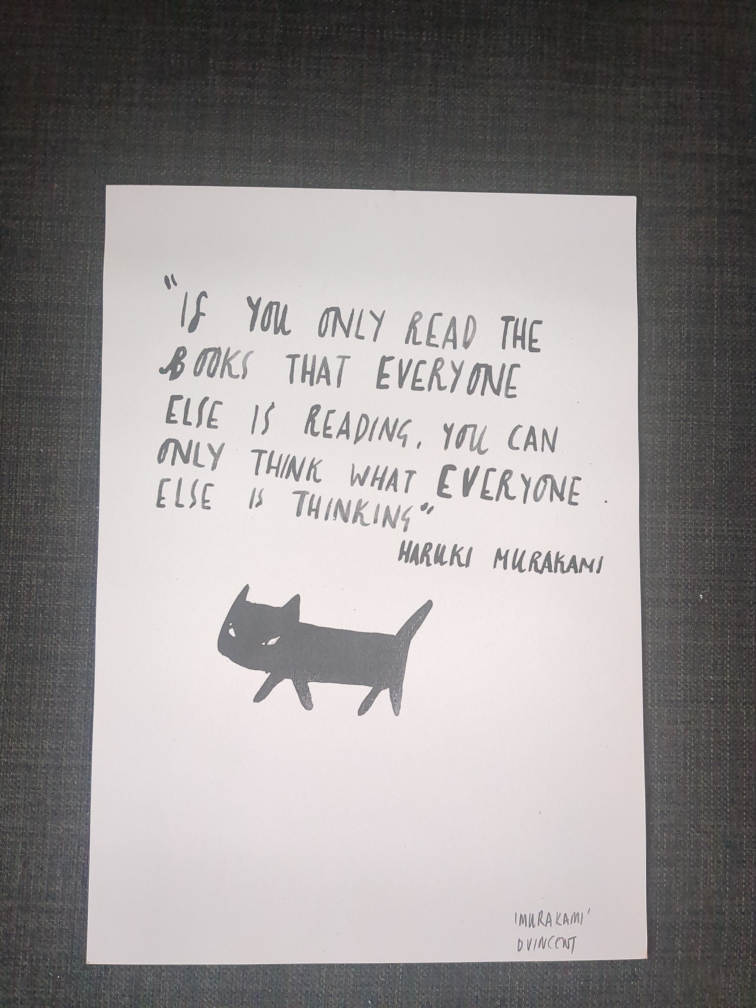 "IF YOU ONLY READ THE
BOOKS THAT EVERYONE
ELSE IS READING, YOU CAN
ONLY THINK WHAT EVERYONE
ELSE IS THINKING"
HARUKI MURAKAMI
'MURAKAMI'
D VINCENT